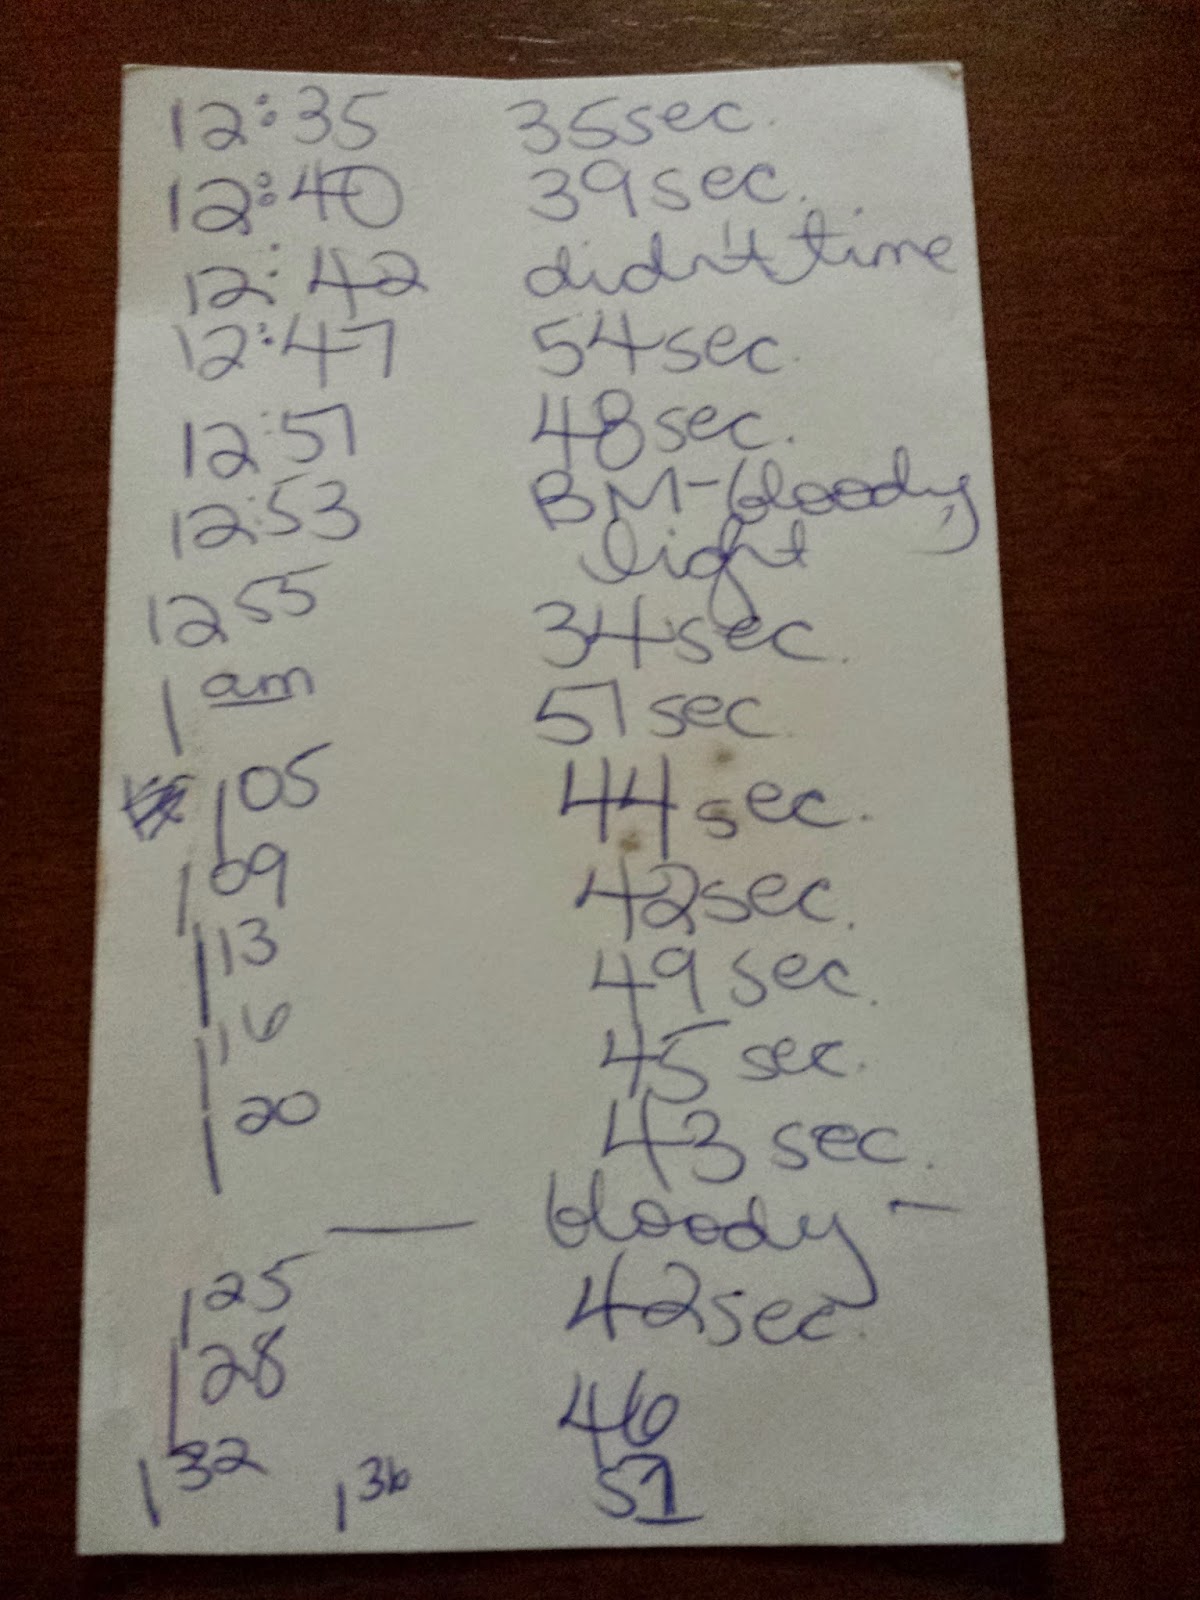 12:35 35sec.
12:40 39sec.
12:42 didn't time
12:47 54sec.
12:51 48sec.
12:53 BM-bloody,
light
12 55 34sec.
1 am 51sec.
1 05 44 sec.
1 09 42sec.
1 13 49 sec.
1 16 45 sec.
1 20 43 sec.
— bloody —
1 25 42sec.
1 28 46
1 32 1 36 51